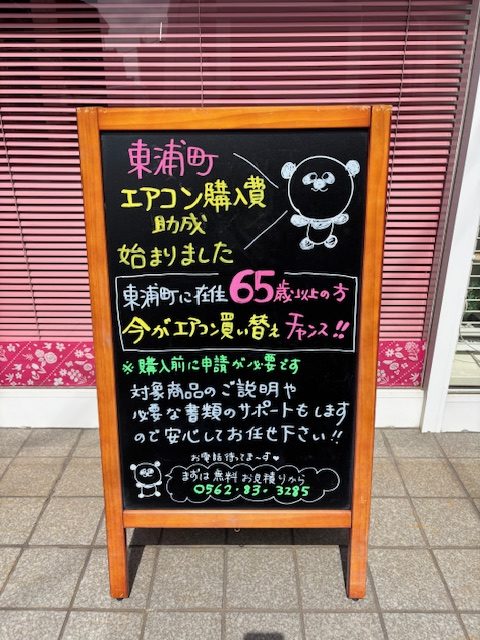 東浦町
エアコン購入費
助成
始まりました
東浦町に在住65歳以上の方
今がエアコン買い替えチャンス!!
※購入前に申請が必要です
対象商品のご説明や
必要な書類のサポートもします
ので安心してお任せ下さい!!
お電話待ってま～す♥
まずは無料お見積りから
0562-83-3285